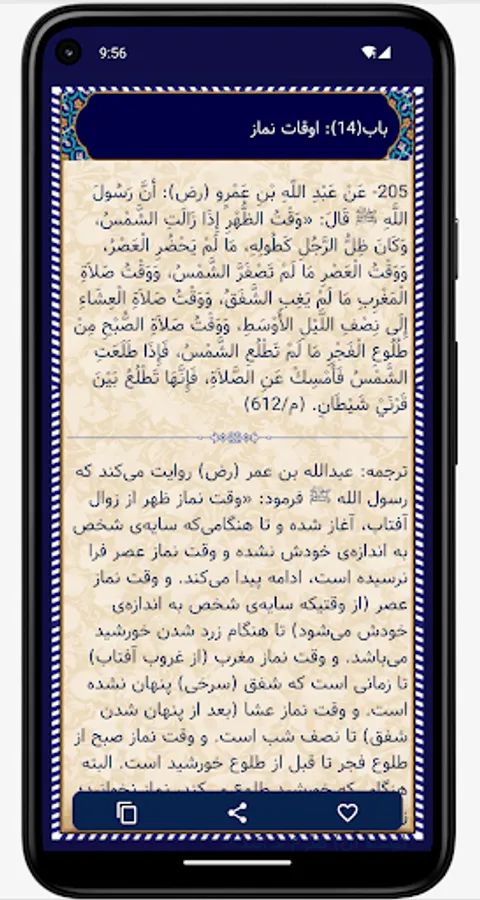 9:56
باب(14): اوقات نماز
205- عَنْ عَبْدِ اللَّهِ بْنِ عَمْرِو (رض): أَنَّ رَسُولَ
اللَّهِ ﷺ قَالَ: «وَقْتُ الظُّهْرِ إِذَا زَالَتِ الشَّمْسُ،
وَكَانَ ظِلُّ الرَّجُلِ كَطُولِهِ، مَا لَمْ يَحْضُرِ الْعَصْرُ،
وَوَقْتُ الْعَصْرِ مَا لَمْ تَصْفَرَّ الشَّمْسُ، وَوَقْتُ صَلاَةِ
الْمَغْرِبِ مَا لَمْ يَغِبِ الشَّفَقُ، وَوَقْتُ صَلاَةِ الْعِشَاءِ
إِلَى نِصْفِ اللَّيْلِ الأَوْسَطِ، وَوَقْتُ صَلاَةِ الصُّبْحِ مِنْ
طُلُوعِ الْفَجْرِ مَا لَمْ تَطْلُعِ الشَّمْسُ، فَإِذَا طَلَعَتِ
الشَّمْسُ فَأَمْسِكْ عَنِ الصَّلاَةِ، فَإِنَّهَا تَطْلُعُ بَيْنَ
قَرْنَيْ شَيْطَانٍ. (م/612)
ترجمه: عبدالله بن عمر (رض) روایت می‌کند که
رسول الله ﷺ فرمود: «وقت نماز ظهر از زوال
آفتاب، آغاز شده و تا هنگامی‌که سایه‌ی شخص
به اندازه‌ی خودش نشده و وقت نماز عصر فرا
نرسیده است، ادامه پیدا می‌کند. و وقت نماز
عصر (از وقتیکه سایه‌ی شخص به اندازه‌ی
خودش می‌شود) تا هنگام زرد شدن خورشید
می‌باشد. و وقت نماز مغرب (از غروب آفتاب)
تا زمانی است که شفق (سرخی) پنهان نشده
است. و وقت نماز عشا (بعد از پنهان شدن
شفق) تا نصف شب است. و وقت نماز صبح از
طلوع فجر تا قبل از طلوع خورشید است. البته
هنگامی که خورشید طلوع می‌کند، نماز نخوانید؛